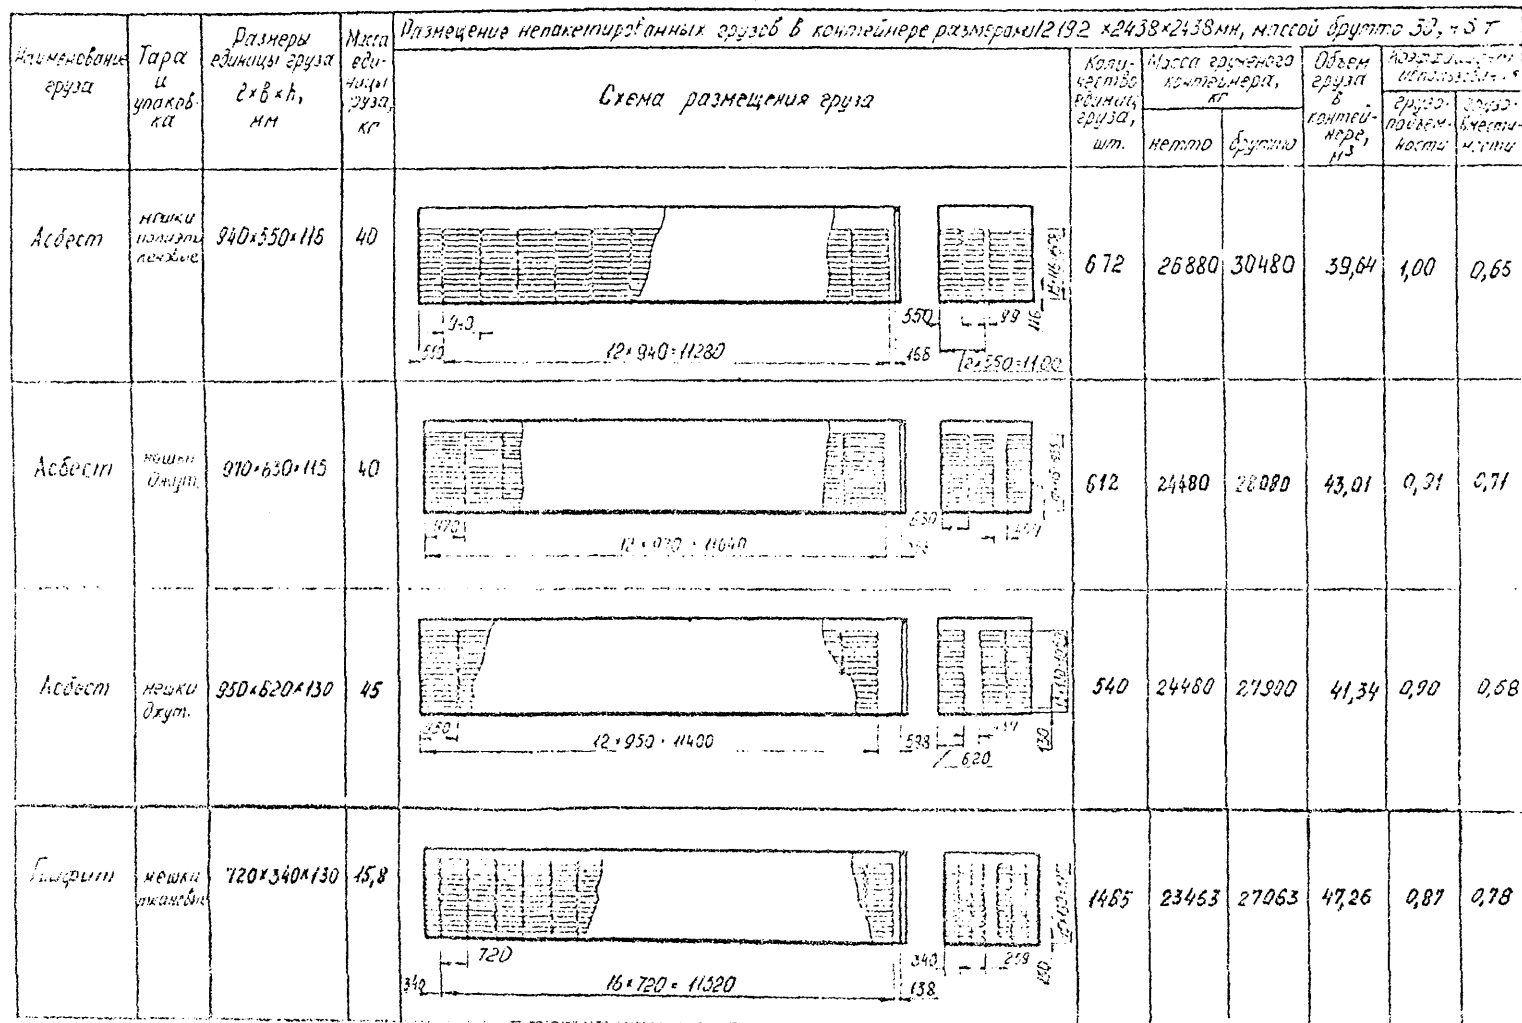 Размещение непакетированных грузов в контейнере размерами 12192 ×2438×2438мм, массой брутто 30,48 т
Наименование
груза
Тара
и
упаков-
ка
Размеры
единицы груза
ℓ×в×h,
мм
Масса
еди-
ницы
груза,
кг
Схема размещения груза
Коли-
чество
единиц
груза,
шт.
Масса груженого
контейнера,
кг
нетто
брутто
Объем
груза
в
контей-
нере,
м³
Коэффициент
использования
грузо-
подъем-
ности
грузо-
вмести-
мости
Асбест
мешки
полиэти
леновые
940×550×116
40
940
550
12×940=11280
168
550
99
116
2×550=1100
672
26880
30480
39,64
1,00
0,65
Асбест
мешки
джут.
970×630×115
40
970
12×970=11640
630
612
24480
28080
43,01
0,91
0,71
Асбест
мешки
джут.
950×620×130
45
950
12×950=11400
598
620
130
540
24480
27900
41,34
0,90
0,68
мешки
тканевые
720×340×130
15,8
720
340
16×720=11520
138
340
259
130
1485
23463
27063
47,26
0,87
0,78